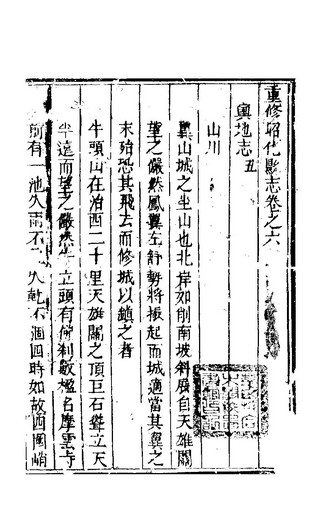 重修昭化縣志卷之六
輿地志五
山川
翼山城之坐山也北岸如削南坡斜展自天雄關
望之儼然鳳翼左舒勢將振起而城適當其翼之
末殆恐其飛去而修城以鎮之者
牛頭山在治西二十里天雄關之頂巨石聳立天
半遠而望之儼然牛立頭有佛剎數楹名摩雲寺
前有一池久雨不 久乾不涸四時如故四圍峭